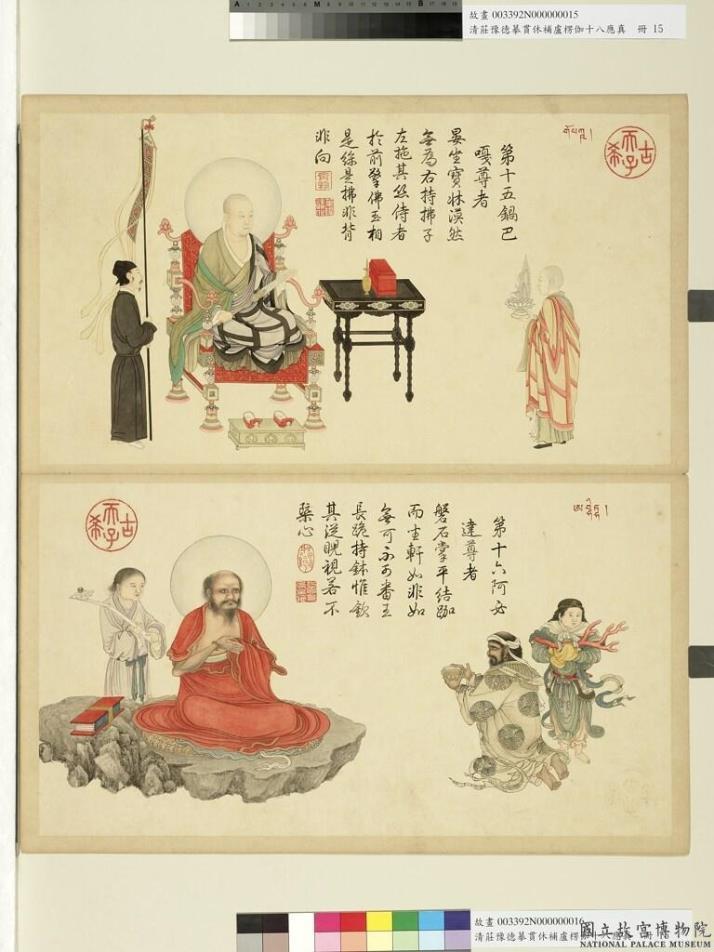 故畫 003392N000000015
清莊豫德摹貫休補盧楞伽十八應真 冊 15
古希天子
第十五鍋巴
嘎尊者
晏坐寶牀漠然
無為右持拂子
左拖其絲侍者
於前擎佛玉相
是絲是拂非背
非向
古希天子
第十六阿必
達尊者
磐石掌平結跏
而坐軒如非如
無可不可番王
長跪持鉢惟欽
其從睨視若不
槩心
故畫 003392N000000016
清莊豫德摹貫休補盧楞伽十八應真 冊
國立故宮博物院
NATIONAL PALACE MUSEUM